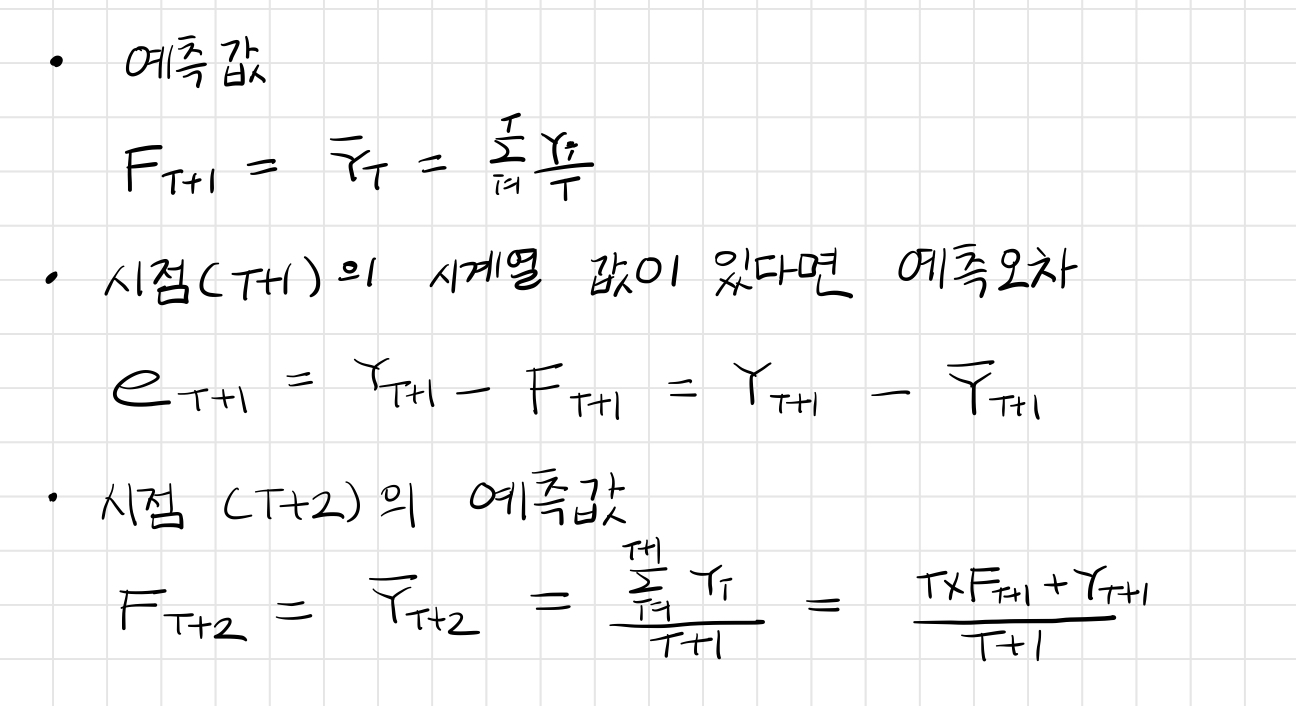 • 예측값
F_{T+1} = \overline{Y}_T = \sum_{i=1}^{T} \frac{Y_i}{T}
• 시점(T+1)의 시계열 값이 있다면 예측오차
e_{T+1} = Y_{T+1} - F_{T+1} = Y_{T+1} - \overline{Y}_{T+1}
• 시점 (T+2)의 예측값
F_{T+2} = \overline{Y}_{T+2} = \frac{\sum_{T=1}^{T+1} Y_T}{T+1} = \frac{T×F_{T+1} + Y_{T+1}}{T+1}